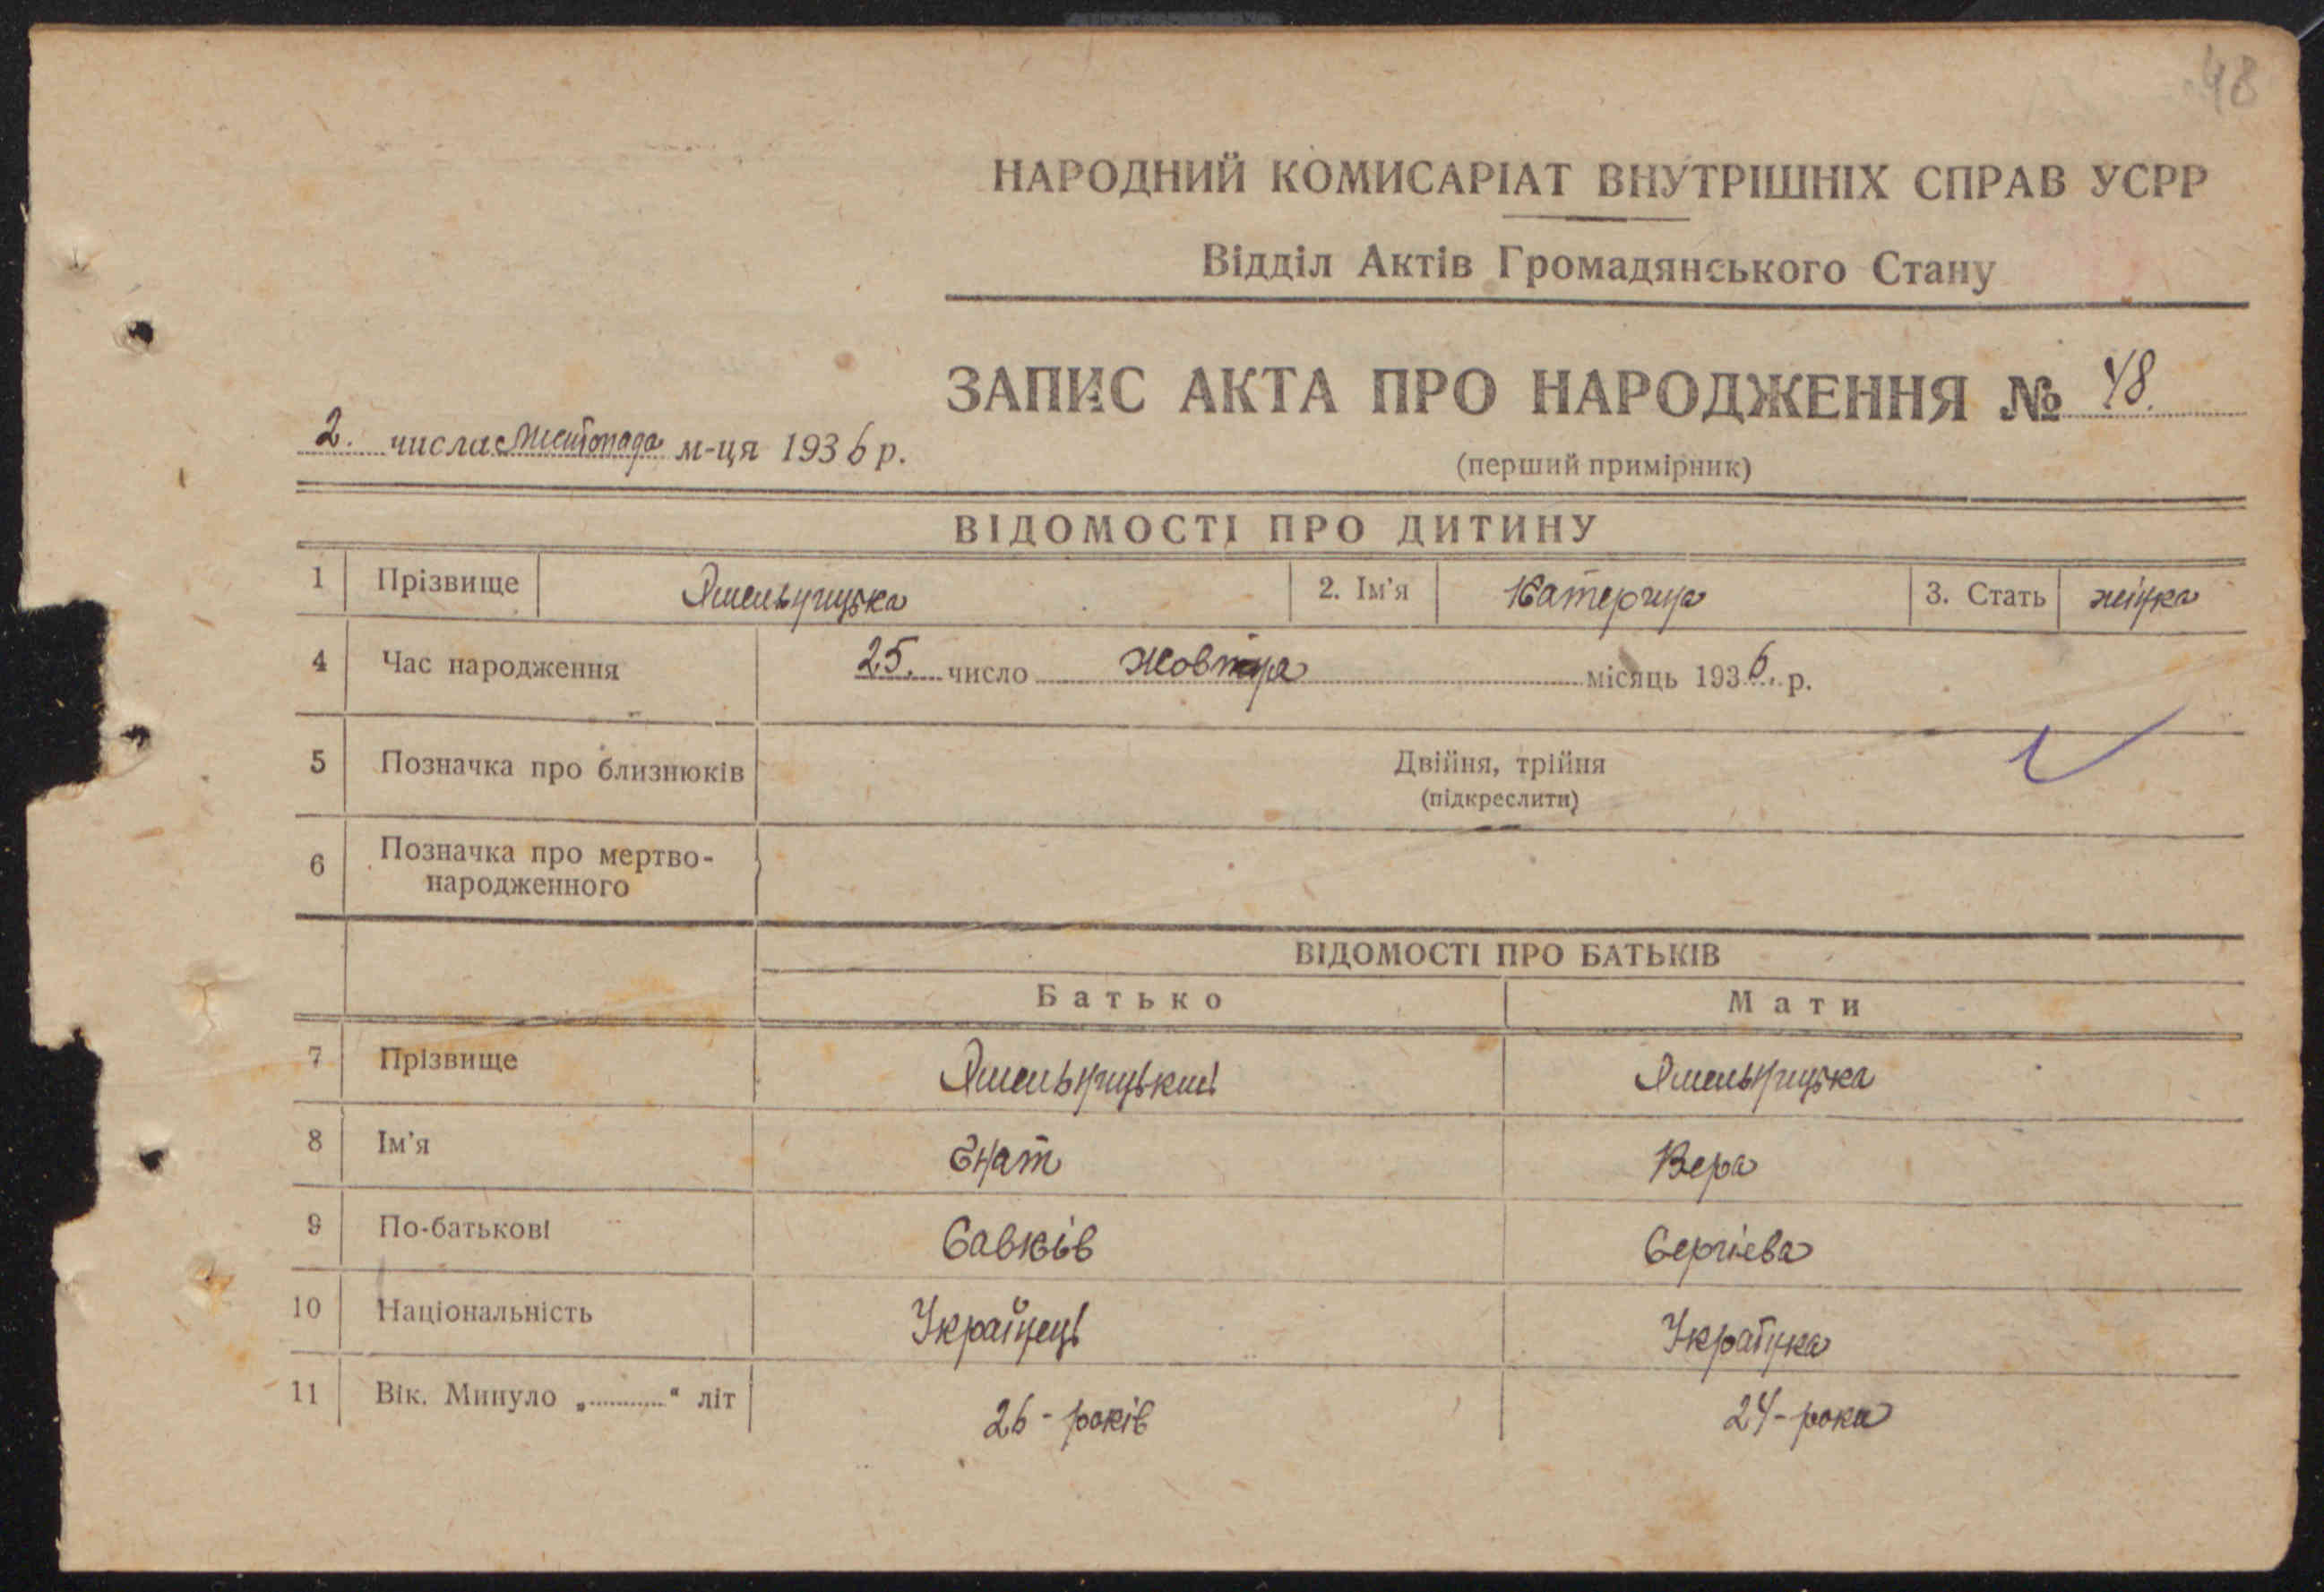 48
НАРОДНИЙ КОМИСАРІАТ ВНУТРІШНІХ СПРАВ УСРР
Відділ Актів Громадянського Стану
ЗАПИС АКТА ПРО НАРОДЖЕННЯ № 48.
2. числа листопада м-ця 1936 р.
(перший примірник)
ВІДОМОСТІ ПРО ДИТИНУ
1 Прізвище Хмельницька 2. Ім'я Катерина 3. Стать жінка
4 Час народження 25. число Жовтня місяць 1936. р.
5 Позначка про близнюків Двійня, трійня
(підкреслити)
6 Позначка про мертво-
народженного
ВІДОМОСТІ ПРО БАТЬКІВ
Батько Мати
7 Прізвище Хмельницький Хмельницька
8 Ім'я Гнат Вера
9 По-батькові Савків Сергієва
10 Національність Українець Українка
11 Вік. Минуло „..........“ літ 26 - років 24 - роки